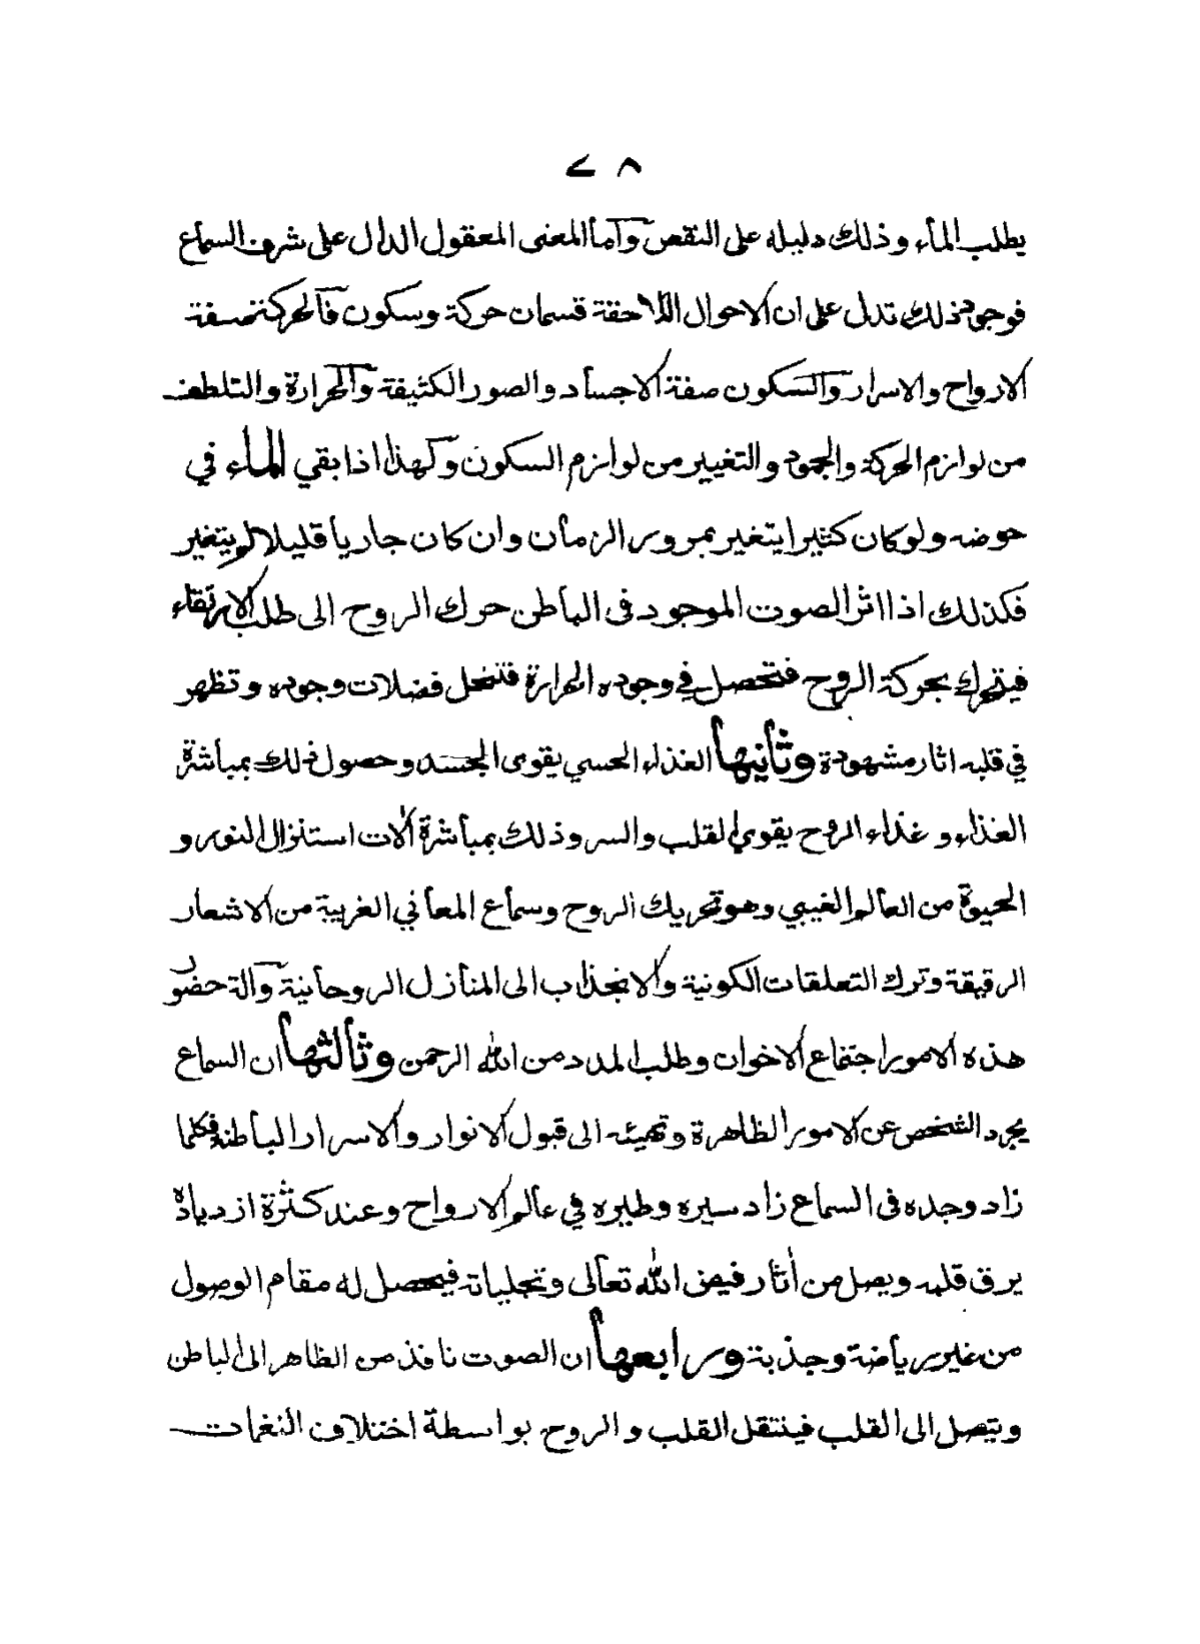 ٧٨
يطلب الماء وذلك دليله على النقص وآما المعنى المعقول الدال على شرف السماع
فوجوه ذلك تدل على ان الاحوال اللاحقة قسمان حركة وسكون فآلحركة صفة
الارواح والاسرار وآلسكون صفة الاجساد والصور الكثيفة وآلحرارة والتلطف
من لوازم الحركة والجمود والتغيير من لوازم السكون وكهذا اذا بقي الماء في
حوضه ولو كان كثيرا يتغير بمرور الزمان وان كان جاريا قليلا لم يتغير
فكذلك اذا اثر الصوت الموجود فى الباطن حرك الروح الى طلب الارتقاء
فيتحرك بحركة الروح فتحصل في وجوده الحرارة فتنحل فضلات وجوده وتظهر
في قلبه اثار مشهودة وثانيها الغذاء الحسي يقوى الجسد وحصول ذلك بمباشرة
الغذاء و غذاء الروح يقوي القلب والسر وذلك بمباشرة آلات استنزال النور و
الحيوة من العالم الغيبي وهو تحريك الروح وسماع المعاني الغريبة من الاشعار
الرقيقة وترك التعلقات الكونية والانجذاب الى المنازل الروحانية وآلة حضور
هذه الامور اجتماع الاخوان وطلب المدد من الله الرحمن وثالثها ان السماع
يجرد الشخص عن الامور الظاهرة وتهيئه الى قبول الانوار والاسرار الباطنة فكلما
زاد وجده فى السماع زاد سيره وطيره في عالم الارواح وعند كثرة ازدياده
يرق قلبه ويصل من أثار فيض الله تعالى وتجلياته فيحصل له مقام الوصول
من غير رياضة وجذبة ورابعها ان الصوت نافذ من الظاهر الى الباطن
ويتصل الى القلب فينتقل القلب و الروح بواسطة اختلاف النغمات